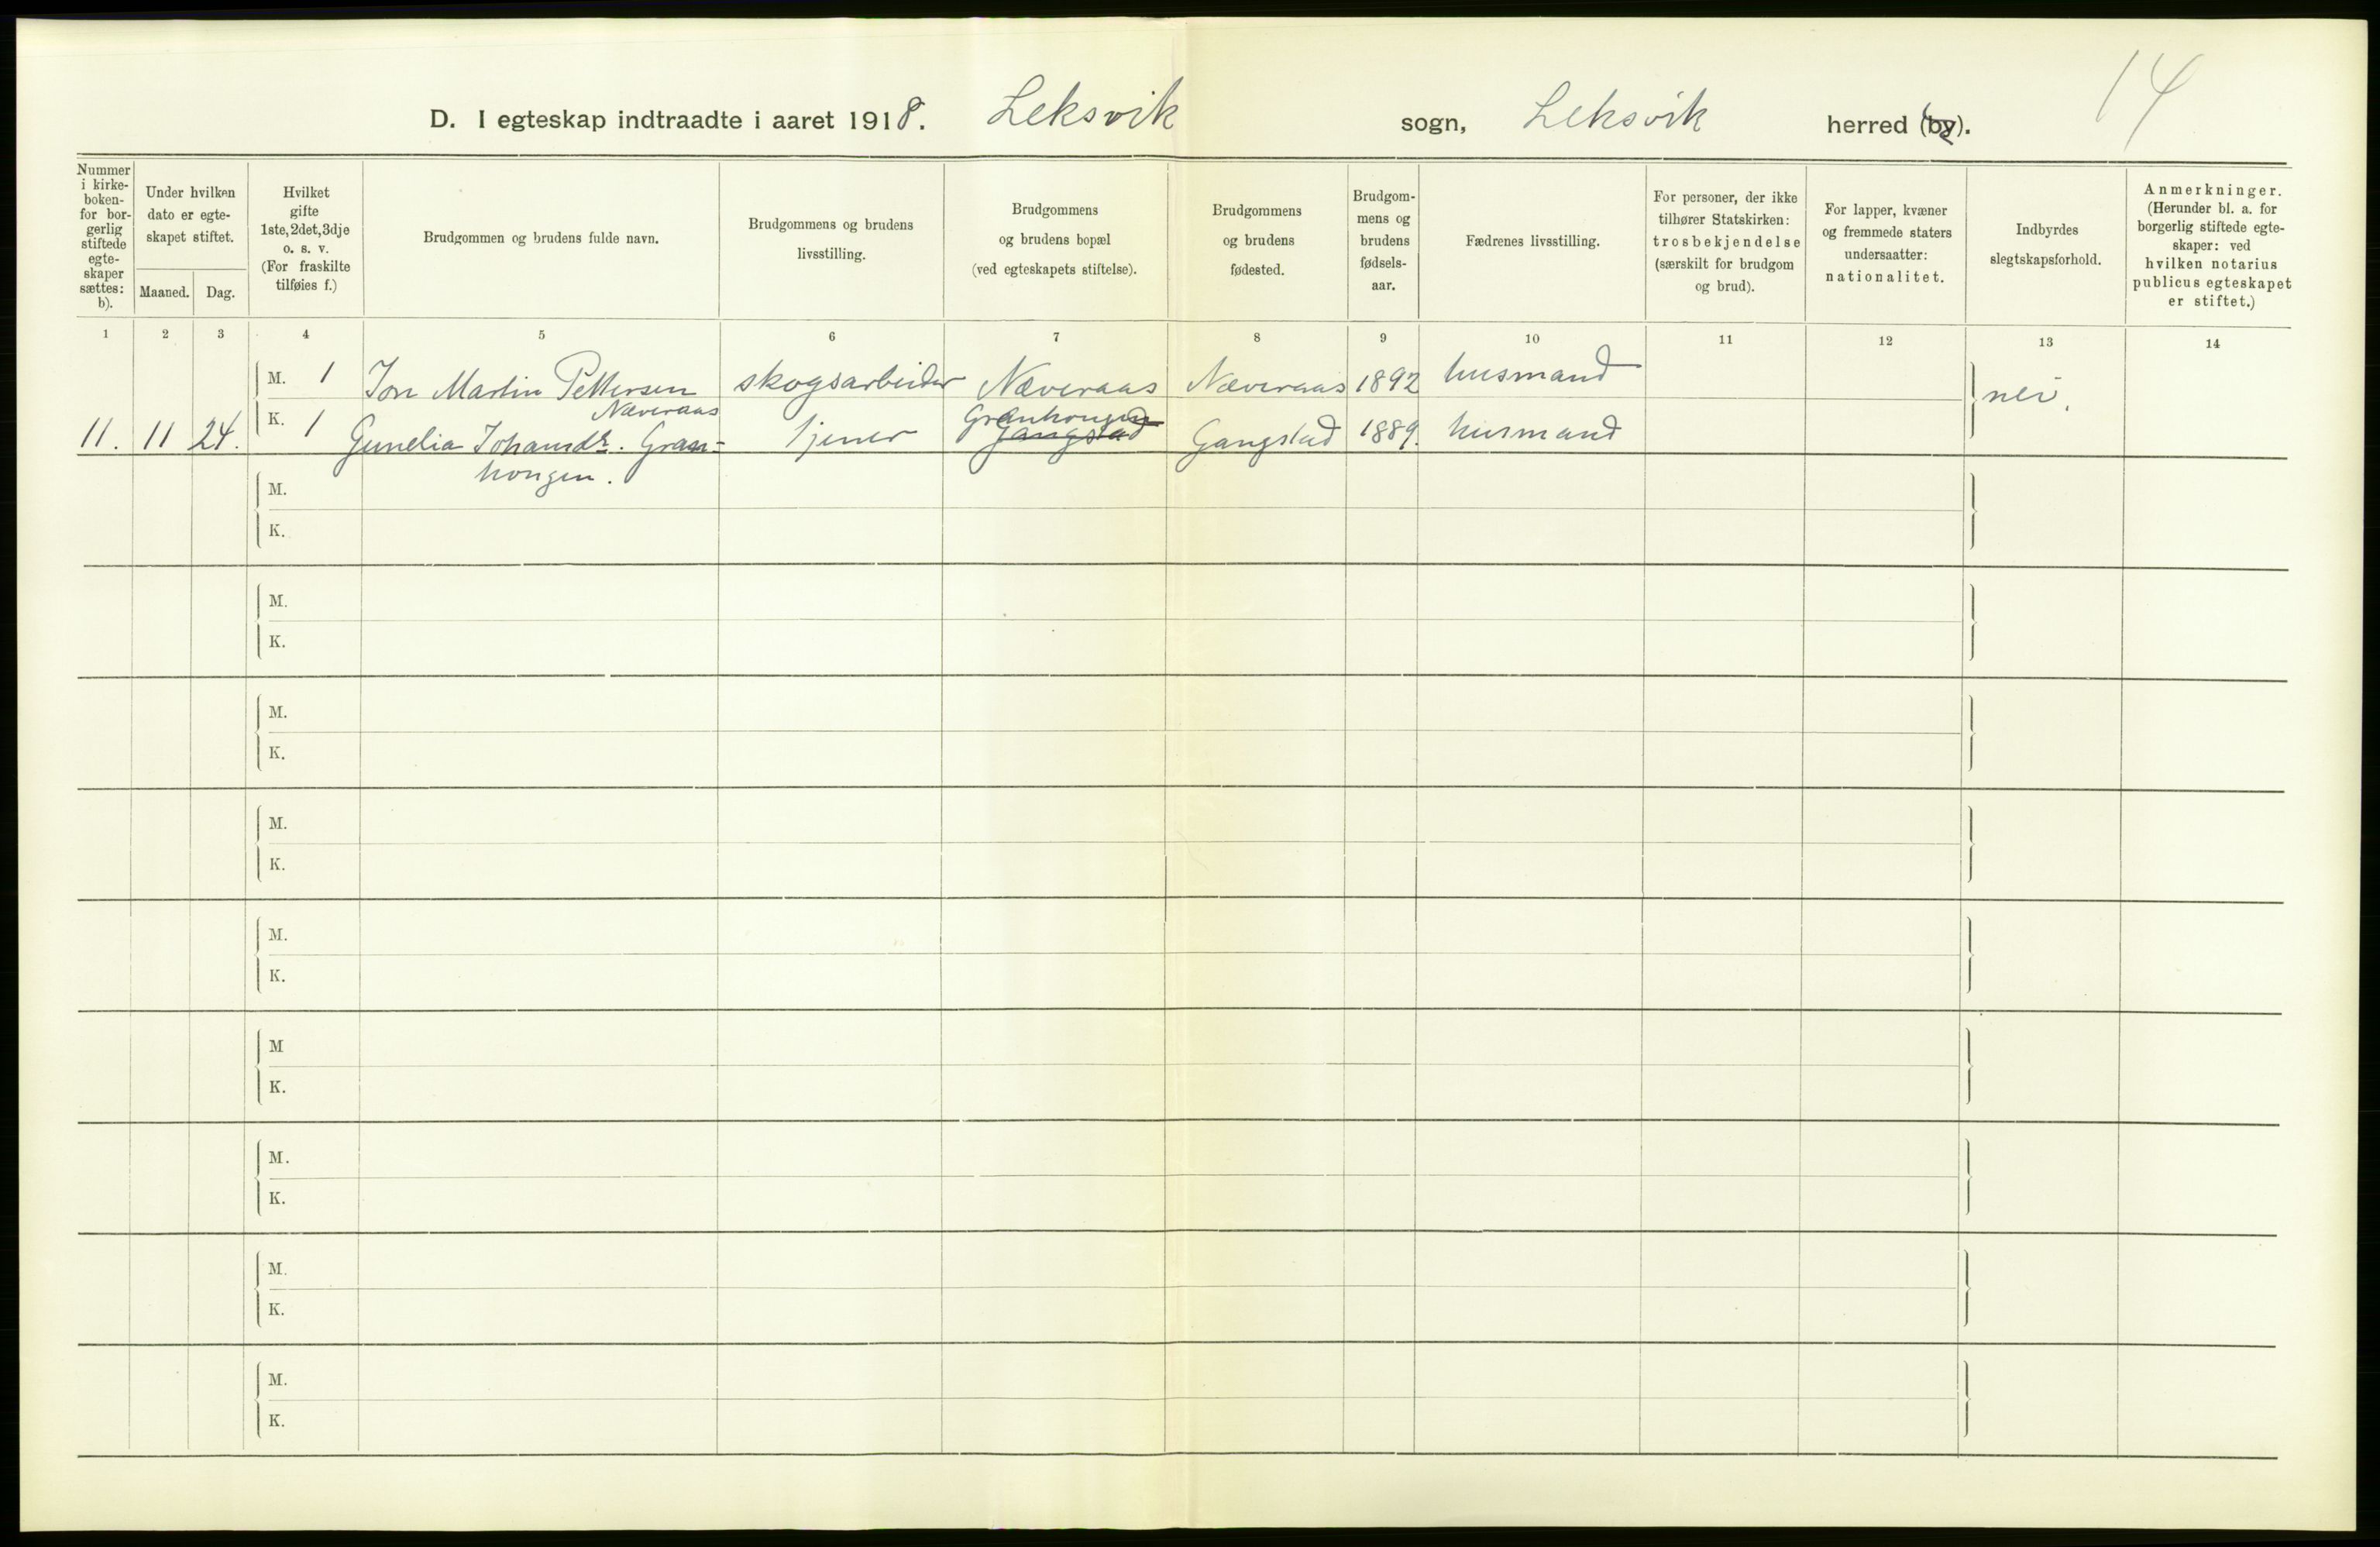 14
D. I egteskap indtraadte i aaret 1918. Leksvik sogn, Leksvik herred (by).
Nummer i kirke-boken- for bor-gerlig stiftede egte-skaper sættes: b).
Under hvilken dato er egte-skapet stiftet.
Maaned. Dag.
Hvilket gifte 1ste, 2det, 3dje o. s. v. (For fraskilte tilføies f.)
Brudgommen og brudens fulde navn.
Brudgommens og brudens livsstilling.
Brudgommens og brudens bopæl (ved egteskapets stiftelse).
Brudgommens og brudens fødested.
Brudgom-mens og brudens fødsels-aar.
Fædrenes livsstilling.
For personer, der ikke tilhører Statskirken: trosbekjendelse (særskilt for brudgom og brud).
For lapper, kvæner og fremmede staters undersaatter: nationalitet.
Indbyrdes slegtskapsforhold.
Anmerkninger. (Herunder bl. a. for borgerlig stiftede egte-skaper: ved hvilken notarius publicus egteskapet er stiftet.)
1 2 3 4 5 6 7 8 9 10 11 12 13 14
M. 1 Jon Martin Pettersen skogsarbeider Næveraas Næveraas 1892 husmand nei.
Næveraas Granhongen
11. 11 24. K. 1 Gunelia Johansdtr. Gran- tjener Gangstad Gangstad 1889. husmand
hongen.
M.
K.
M.
K.
M.
K.
M.
K.
M.
K.
M
K.
M.
K.
M.
K.
M.
K.